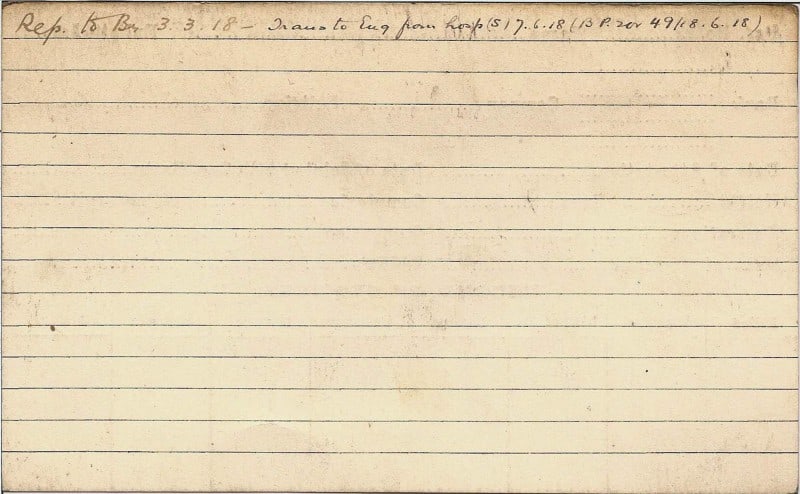 Rep. to Bn 3.3.18 — Trans to Eng from hosp (S) 7.6.18 (B P. 49/18.6.18)